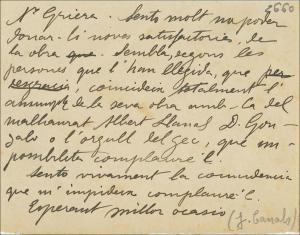 2660
Nr Griera. Sento molt no poder
donar-li noves satisfactories de
la obra que. Sembla, segons les
persones que l'han llegida, que per
desgracia, coincideix totalment l'
assumpte de la seva obra amb la del
malhaurat Albert Llanas D. Gon-
zalo o l'orgull del gec, que im-
possibilita complaure'l.
Sento vivament la coincidencia
que m'impideix complaure'l.
Esperant millor ocasio (J. Canals)